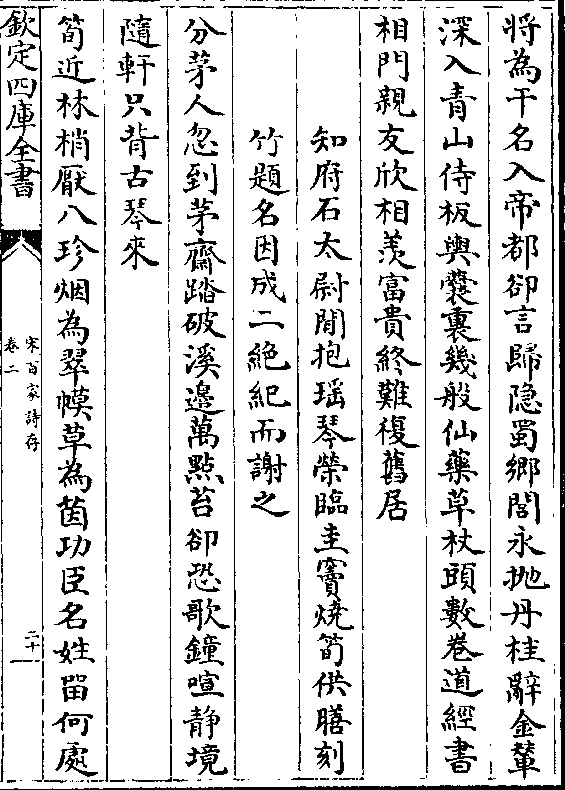 將為干名入帝都卻言歸隐蜀鄉閭永抛丹桂辭金輦
深入青山侍板輿囊裏幾般仙藥草杖頭數卷道經書
相門親友欣相羡富貴終難複舊居
知府石太尉閒抱瑶琴榮臨圭竇燒筍供膳刻
竹題名因成二絶紀而謝之
分茅人忽到茅齋踏破溪邉萬點苔卻恐歌鐘喧静境
隨軒只背古琴來
筍近林梢厭八珍烟為翠幙草為茵功臣名姓畱何處
欽定四庫全書
宋百家詩存
卷二
二十